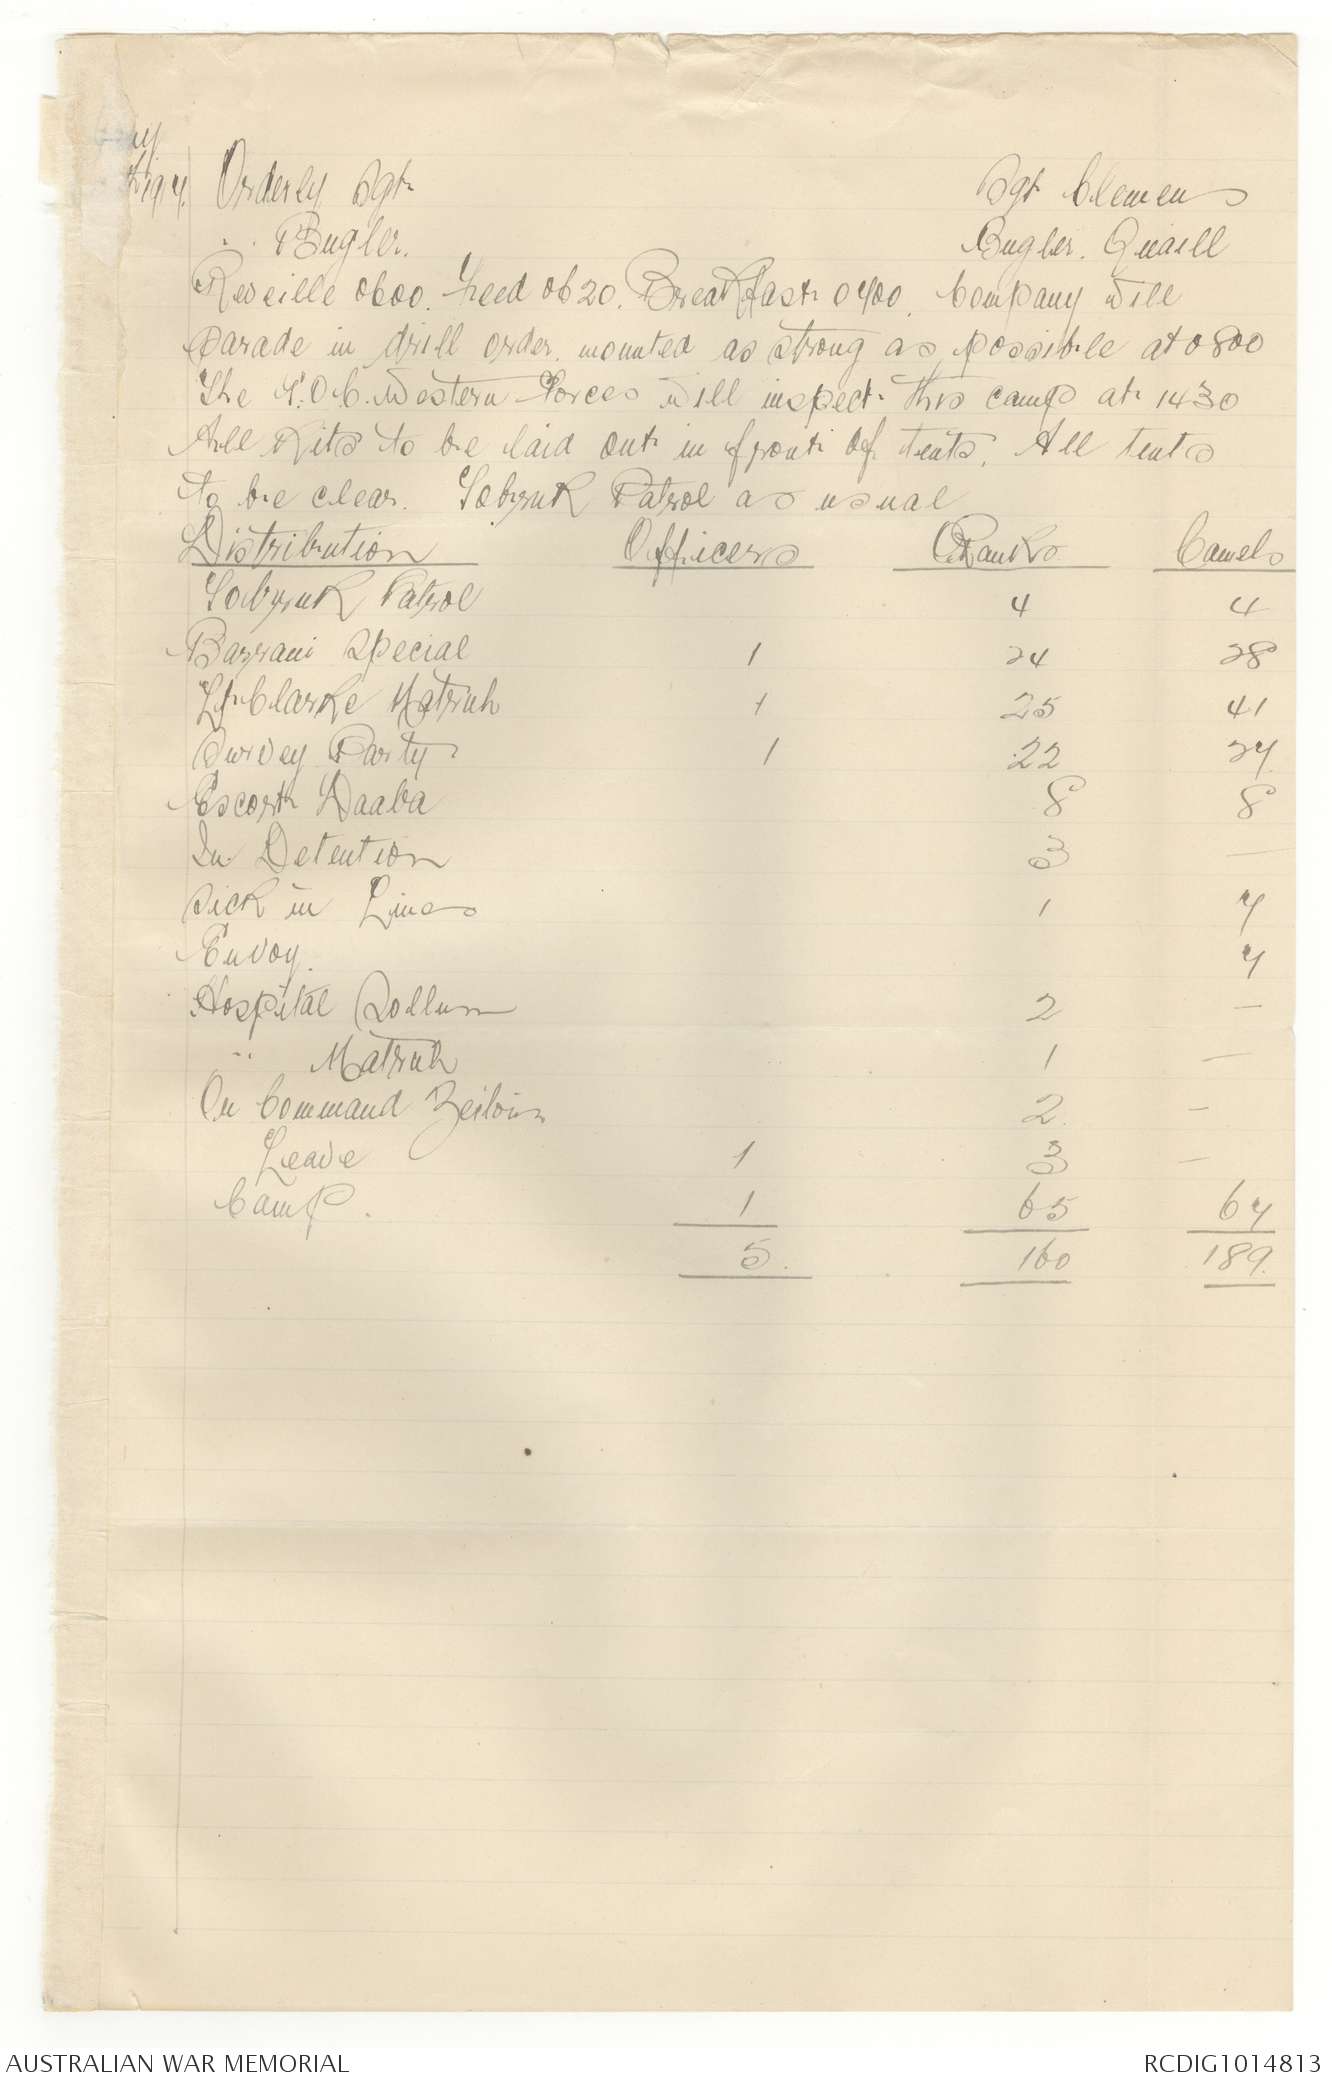 Orderly Sgt. Sgt Clemens
" Bugler. Bugler. Quaill
Reveille 0600. Feed 0620. Breakfast 0700. Company will
parade in drill order mounted as strong as possible at 0800
The G.O.C. Western Forces will inspect this camp at 1430
All Kits to be laid out in front of tents. All tents
to be clear. Tobruk Patrol as usual
Distribution Officers O Ranks Camels
Tobruk Patrol 4 4
Barrani Special 1 24 28
Lt. Clarke Matruh 1 25 41
Survey Party 1 22 27
Escort Daaba 8 8
In Detention 3 —
Sick in Lines 1 7
Envoy. 7
Hospital Sollum 2 —
" Matruh 1 —
On Command Zeitoun 2. —
Leave 1 3 —
Camp. 1 65 67
5. 160 189.
AUSTRALIAN WAR MEMORIAL RCDIG1014813